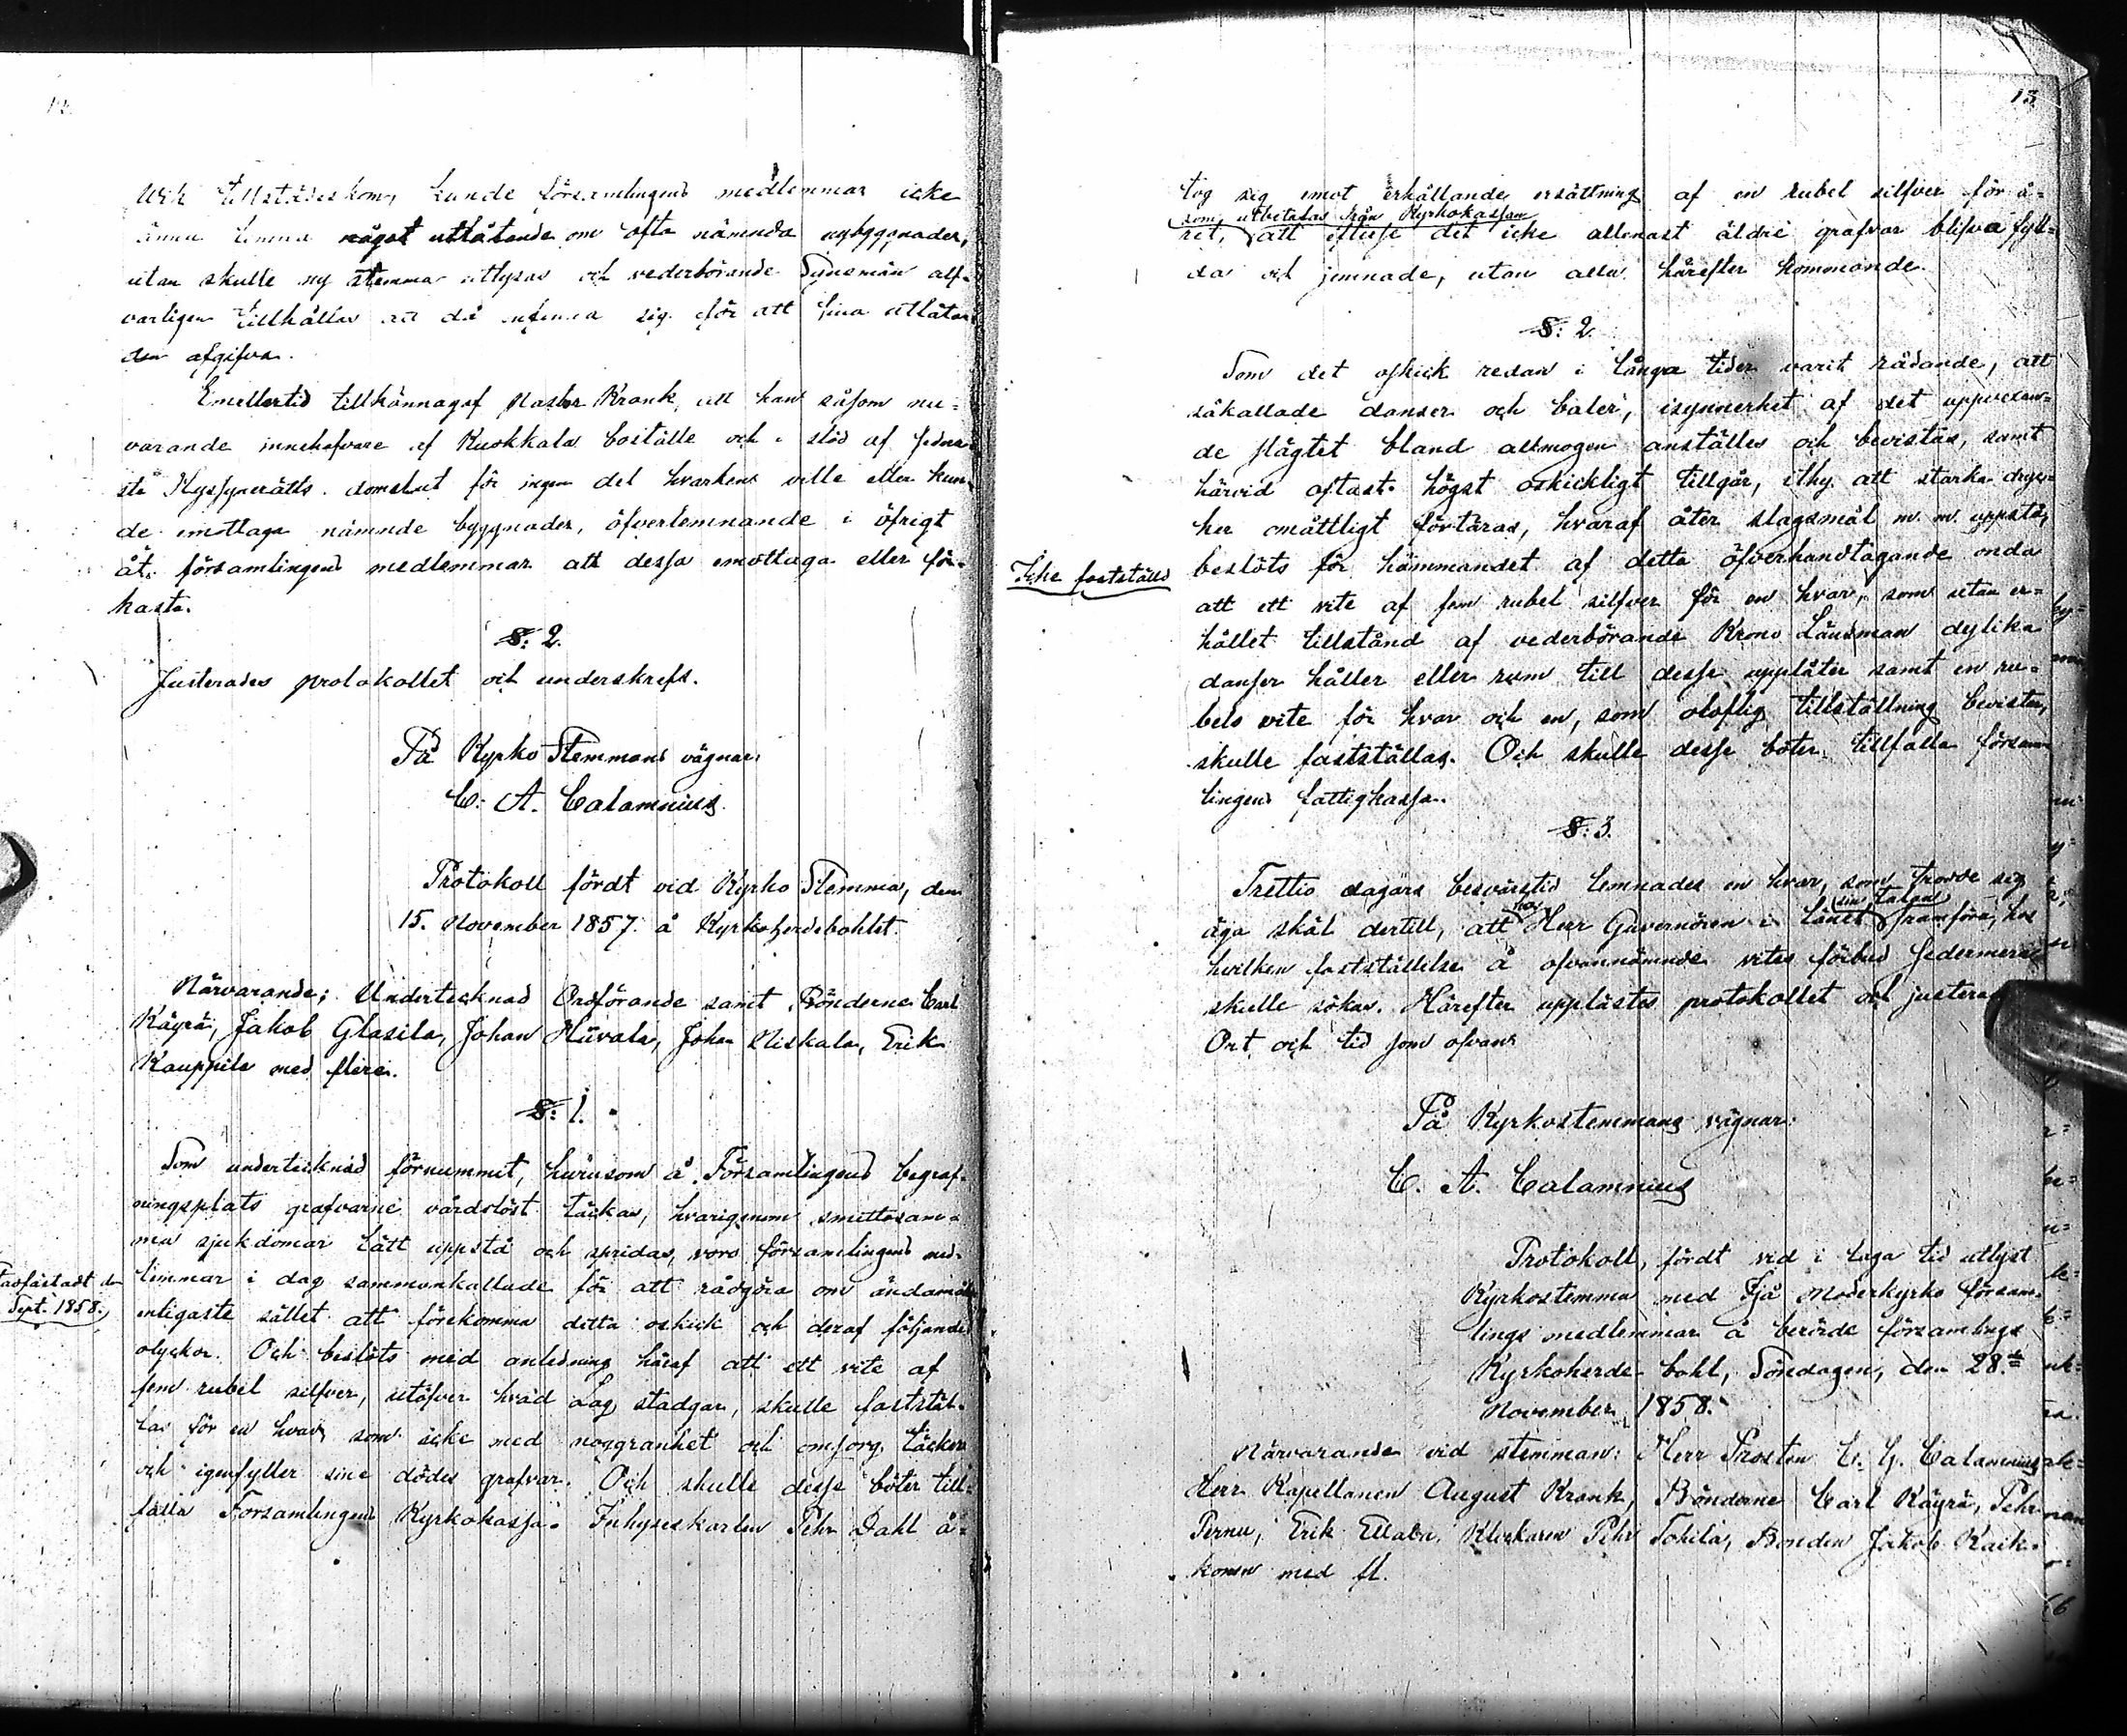 12.
tillstädeskom, kunde församlingens medlemmar icke
ännu lemna något utlåtande om ofta nämnda nybyggnader,
utan skulle ny stemma utlysas och vederbörande Länsmän all-
varligen tillhållas att då infinna sig för att sina utlåtan-
den afgifva.
Emellertid tillkännagaf Pastor Krank, att han såsom nu-
varande innehafvare af Kuokkala boställe och i stöd af sedna-
ste Hussynerätts domslut för ingen del hvarken ville eller kun-
de emottaga nämnde byggnader, öfverlemnande i öfrigt
åt församlingens medlemmar att dessa emottaga eller för-
kasta.
§: 2.
Justerades protokollet och underskrefs.
På Kyrko Stemmans vägnar:
C. A. Calamnius
Protokoll fördt vid Kyrko Stemma, den
15. November 1857. å Kyrkoherdebohlet.
Närvarande; Undertecknad Ordförande samt Bönderne Carl
Käyrä, Jakob Glasila, Johan Hiivala, Johan Niskala, Erik
Kauppila med flere.
§: 1.
Som undertecknad förnummit, hurusom å Församlingens begraf-
ningsplats grafvarne vårdslöst täckas, hvarigenom smittosam-
ma sjukdomar lätt uppstå och spridas, voro församlingens med-
lemmar i dag sammankallade för att rådgöra om ändamåls-
Fastfästadt d.
Sept. 1858.
enligaste sättet att förekomma detta oskick och deraf följande
olyckor. Och beslöts med anledning häraf att ett vite af
fem rubel silfver, utöfver hvad Lag stadgar, skulle faststäl-
las för en hvar som icke med noggranhet och omsorg täcker
och igenfyller sine dödes grafvar. Och skulle desse böter till-
falla Församlingens Kyrkokassa. Inhyseskarlen Pehr Dahl å-
13.
tog sig emot erhållande ersättning af en rubel silfver för å-
som utbetalas från Kyrkokassan
ret, att eftersé det icke allenast äldre grafvar blifva fyll-
da och jemnade, utan alla härefter kommande.
§: 2.
Som det oskick redan i långa tider varit rådande, att
såkallade danser och baler, isynnerhet af det uppvexan-
de slägtet bland allmogen anställes och bevistas, samt
härvid oftast högst oskickligt tillgår, ithy att starka dryc-
ker omåttligt förtäras, hvaraf åter slagsmål m. m. uppstå,
Icke fastställd
beslöts för hämmandet af detta öfverhandtagande onda
att ett vite af fem rubel silfver för en hvar, som utan er-
hållet tillstånd af vederbörande Krono Länsman dylika
danser håller eller rum till desse upplåter samt en ru-
bels vite för hvar och en, som oloflig tillställning bevistar,
skulle fastställas. Och skulle desse böter tillfalla försam-
lingens fattigkassa.
§: 3.
Trettio dagars besvärstid lemnades en hvar, som trodde sig
hos
sin talan
äga skäl dertill, att Herr Guvernören i länet framföra, hos
hvilken fastställelse å ofvannämnde vites förbud sedermera
skulle sökas. Härefter upplästes protokollet och justerades
Ort och tid som ofvan
På Kyrkostemmans vägnar:
C. A. Calamnius
Protokoll, fördt vid i laga tid utlyst
Kyrkostemma med Ijå Moderkyrko försam-
lings medlemmar å berörde församlings
Kyrkoherde bohl, Söndagen, den 28de
November 1858.
Närvarande vid stemman: Herr Prosten C. G. Calamnius
Herr Kapellanen August Krank, Bönderne Carl Käyrä, Pehr
Pernu, Erik Ellala, Klockaren Pehr Tohila, Bonden Jakob Kaik-
konen med fl.